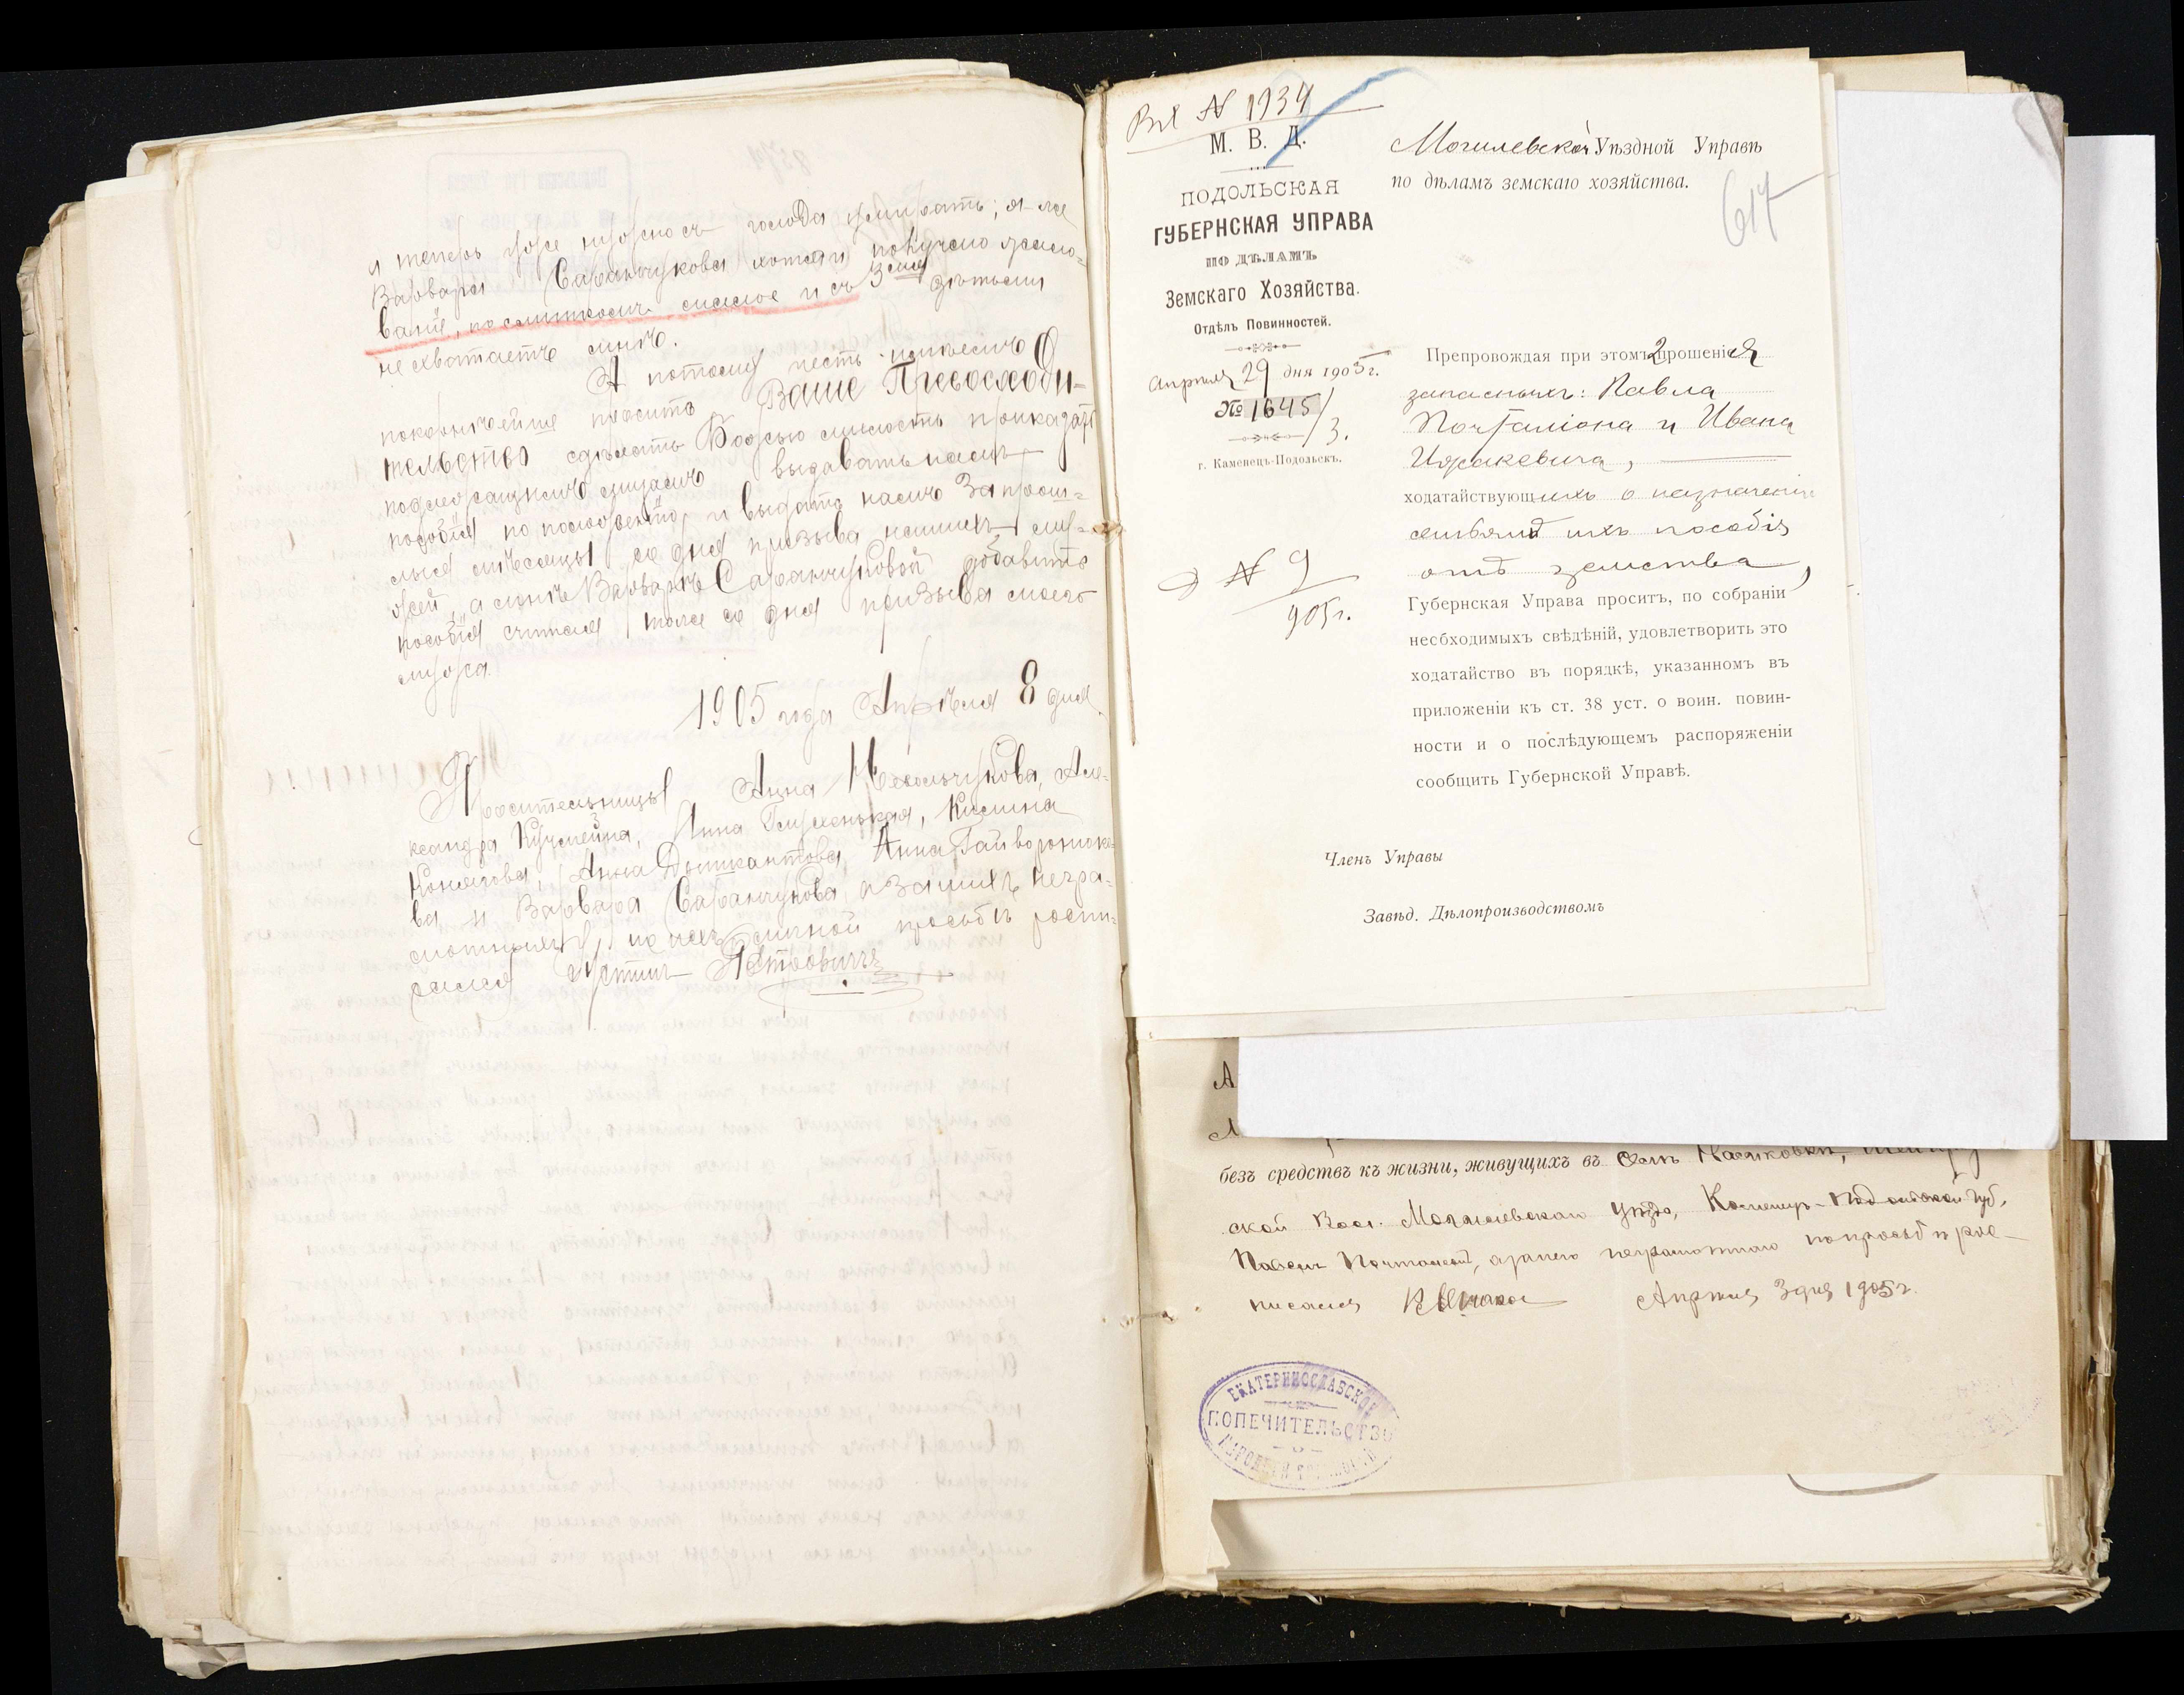 и теперь уже нужно съ голода умирать; я-же
Варвара Саранчукова хотя и получаю жало-
ванiе, но слишкомъ малое и съ 3мя дѣтьми
не хватаетъ мнѣ.
А потому честь имѣемъ
покорнѣйше просить Ваше Превосходи-
тельство сдѣлать Божью милость приказать
подлежащимъ лицамъ выдавать намъ
пособiя по положенiю и выдать намъ за прош-
лые мѣсяцы со дня призыва нашихъ му-
жей, а мнѣ Варварѣ Саранчуковой добавить
пособiя считая тоже со дня призыва моего
мужа.
1905 года Апрѣля 8 дня
Просительницы Анна Мохольчукова, Але-
ксандра Кучмейна, Анна Глушенькая, Килина
Конягова, Анна Дышкантова, Анна Гайворонюко-
ва и Варвара Саранчукова, а за нихъ негра-
мотныхъ по ихъ личной просьбѣ роспи-
сался Устинъ Петровичъ
Вх № 1934
М. В. Д.
ПОДОЛЬСКАЯ
ГУБЕРНСКАЯ УПРАВА
ПО ДѢЛАМЪ
Земскаго Хозяйства.
Отдѣлъ Повинностей.
Апрѣля 29 дня 1905 г.
№ 1645/3.
г. Каменецъ-Подольскъ.
№ 9
905 г.
Могилевской Уѣздной Управѣ
по дѣламъ земскаго хозяйства.
617
Препровождая при этомъ 2 прошенія
запасныхъ: Павла
Почталіона и Ивана
Ижакевича,
ходатайствующихъ о назначеніи
семьямъ ихъ пособія
отъ земства,
Губернская Управа проситъ, по собраніи
несбходимыхъ свѣдѣній, удовлетворить это
ходатайство въ порядкѣ, указанномъ въ
приложеніи къ ст. 38 уст. о воин. повин-
ности и о послѣдующемъ распоряженіи
сообщить Губернской Управѣ.
Членъ Управы
Завѣд. Дѣлопроизводствомъ
безъ средствъ къ жизни, живущихъ въ селѣ
ской Вол. Могилевскаго уѣзда, Каменецъ-Подольской губ.
Павелъ Почталіонъ, а за него неграмотнаго по просьбѣ рос-
писался Апрѣля 3 дня 1905 г.
ЕКАТЕРИНОСЛАВСКОЕ
ПОПЕЧИТЕЛЬСТВО
О
НАРОДНОЙ ТРЕЗВОСТИ